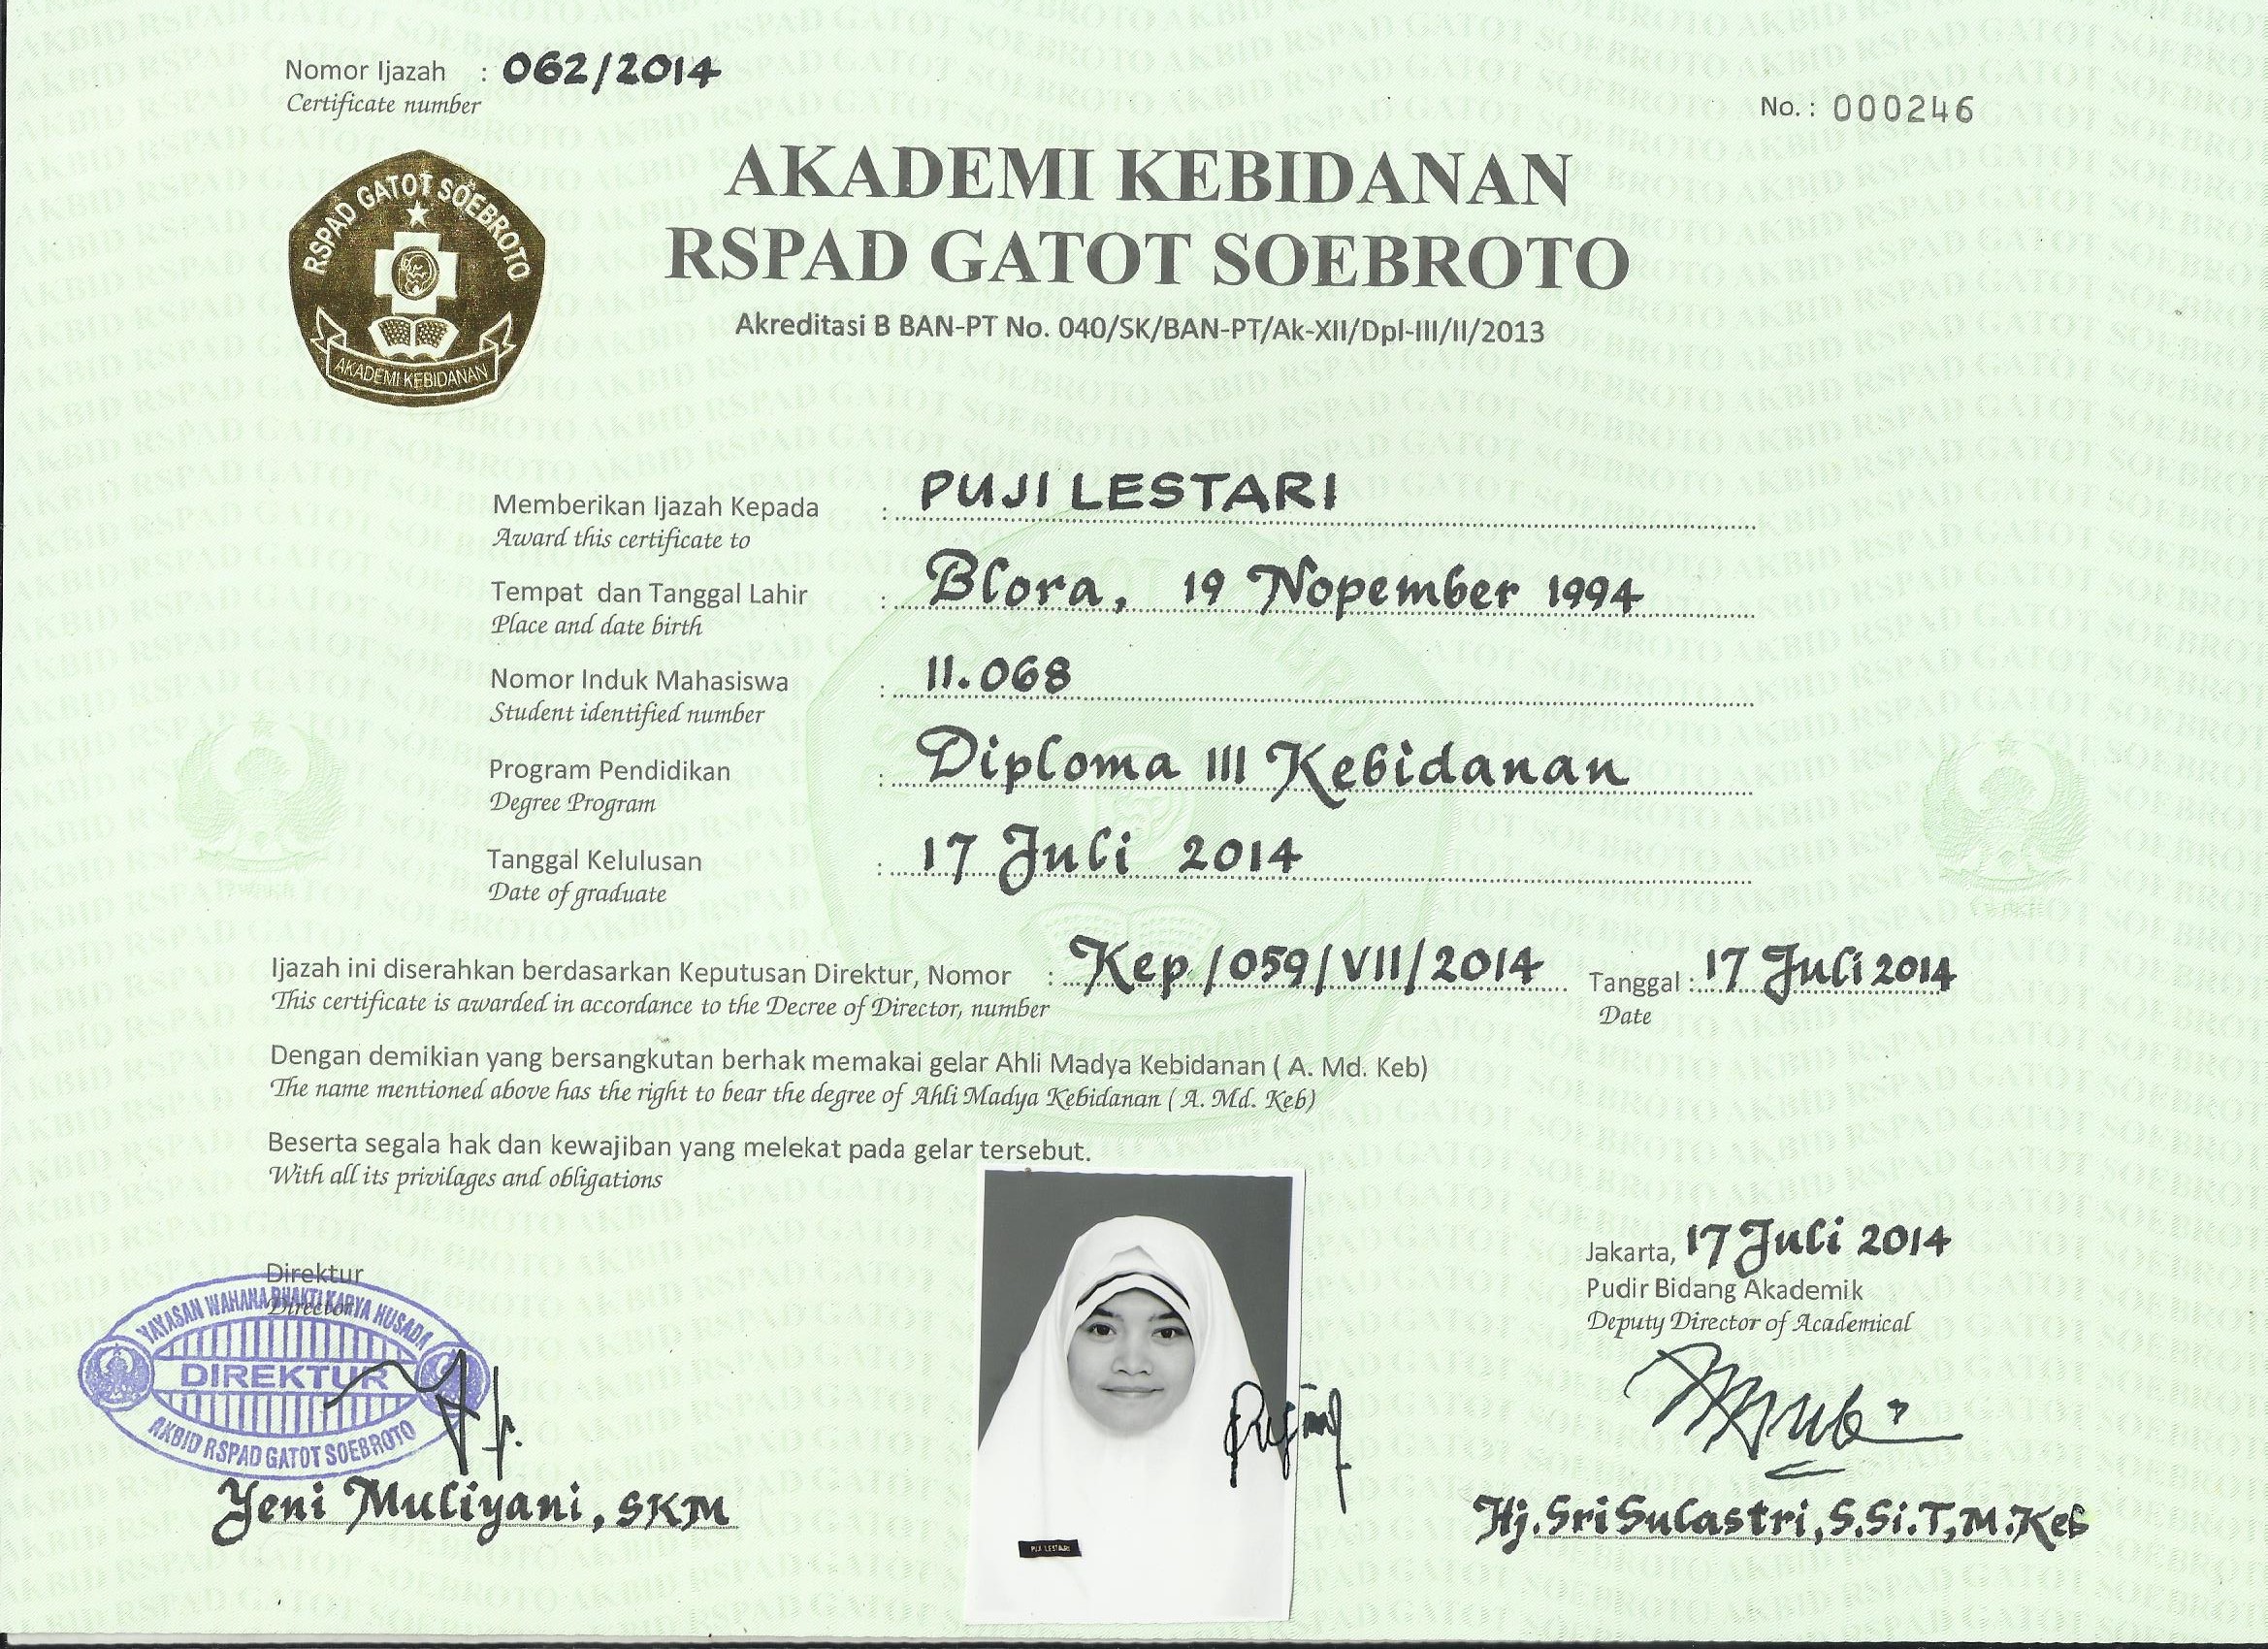 Nomor Ijazah : 062/2014
Certificate number
No. : 000246
RSPAD GATOT SOEBROTO
AKADEMI KEBIDANAN
AKADEMI KEBIDANAN
RSPAD GATOT SOEBROTO
Akreditasi B BAN-PT No. 040/SK/BAN-PT/Ak-XII/Dpl-III/II/2013
Memberikan Ijazah Kepada : PUJI LESTARI
Award this certificate to
Tempat dan Tanggal Lahir : Blora, 19 Nopember 1994
Place and date birth
Nomor Induk Mahasiswa : 11.068
Student identified number
Program Pendidikan : Diploma III Kebidanan
Degree Program
Tanggal Kelulusan : 17 Juli 2014
Date of graduate
Ijazah ini diserahkan berdasarkan Keputusan Direktur, Nomor : Kep/059/VII/2014 Tanggal : 17 Juli 2014
This certificate is awarded in accordance to the Decree of Director, number Date
Dengan demikian yang bersangkutan berhak memakai gelar Ahli Madya Kebidanan ( A. Md. Keb)
The name mentioned above has the right to bear the degree of Ahli Madya Kebidanan ( A. Md. Keb)
Beserta segala hak dan kewajiban yang melekat pada gelar tersebut.
With all its privilages and obligations
Jakarta, 17 Juli 2014
Direktur
Director
Pudir Bidang Akademik
Deputy Director of Academical
YAYASAN WAHANA BHAKTI KARYA HUSADA
DIREKTUR
AKBID RSPAD GATOT SOEBROTO
Yeni Muliyani, SKM
PUJI LESTARI
Hj. Sri Sulastri, S.Si.T, M.Keb